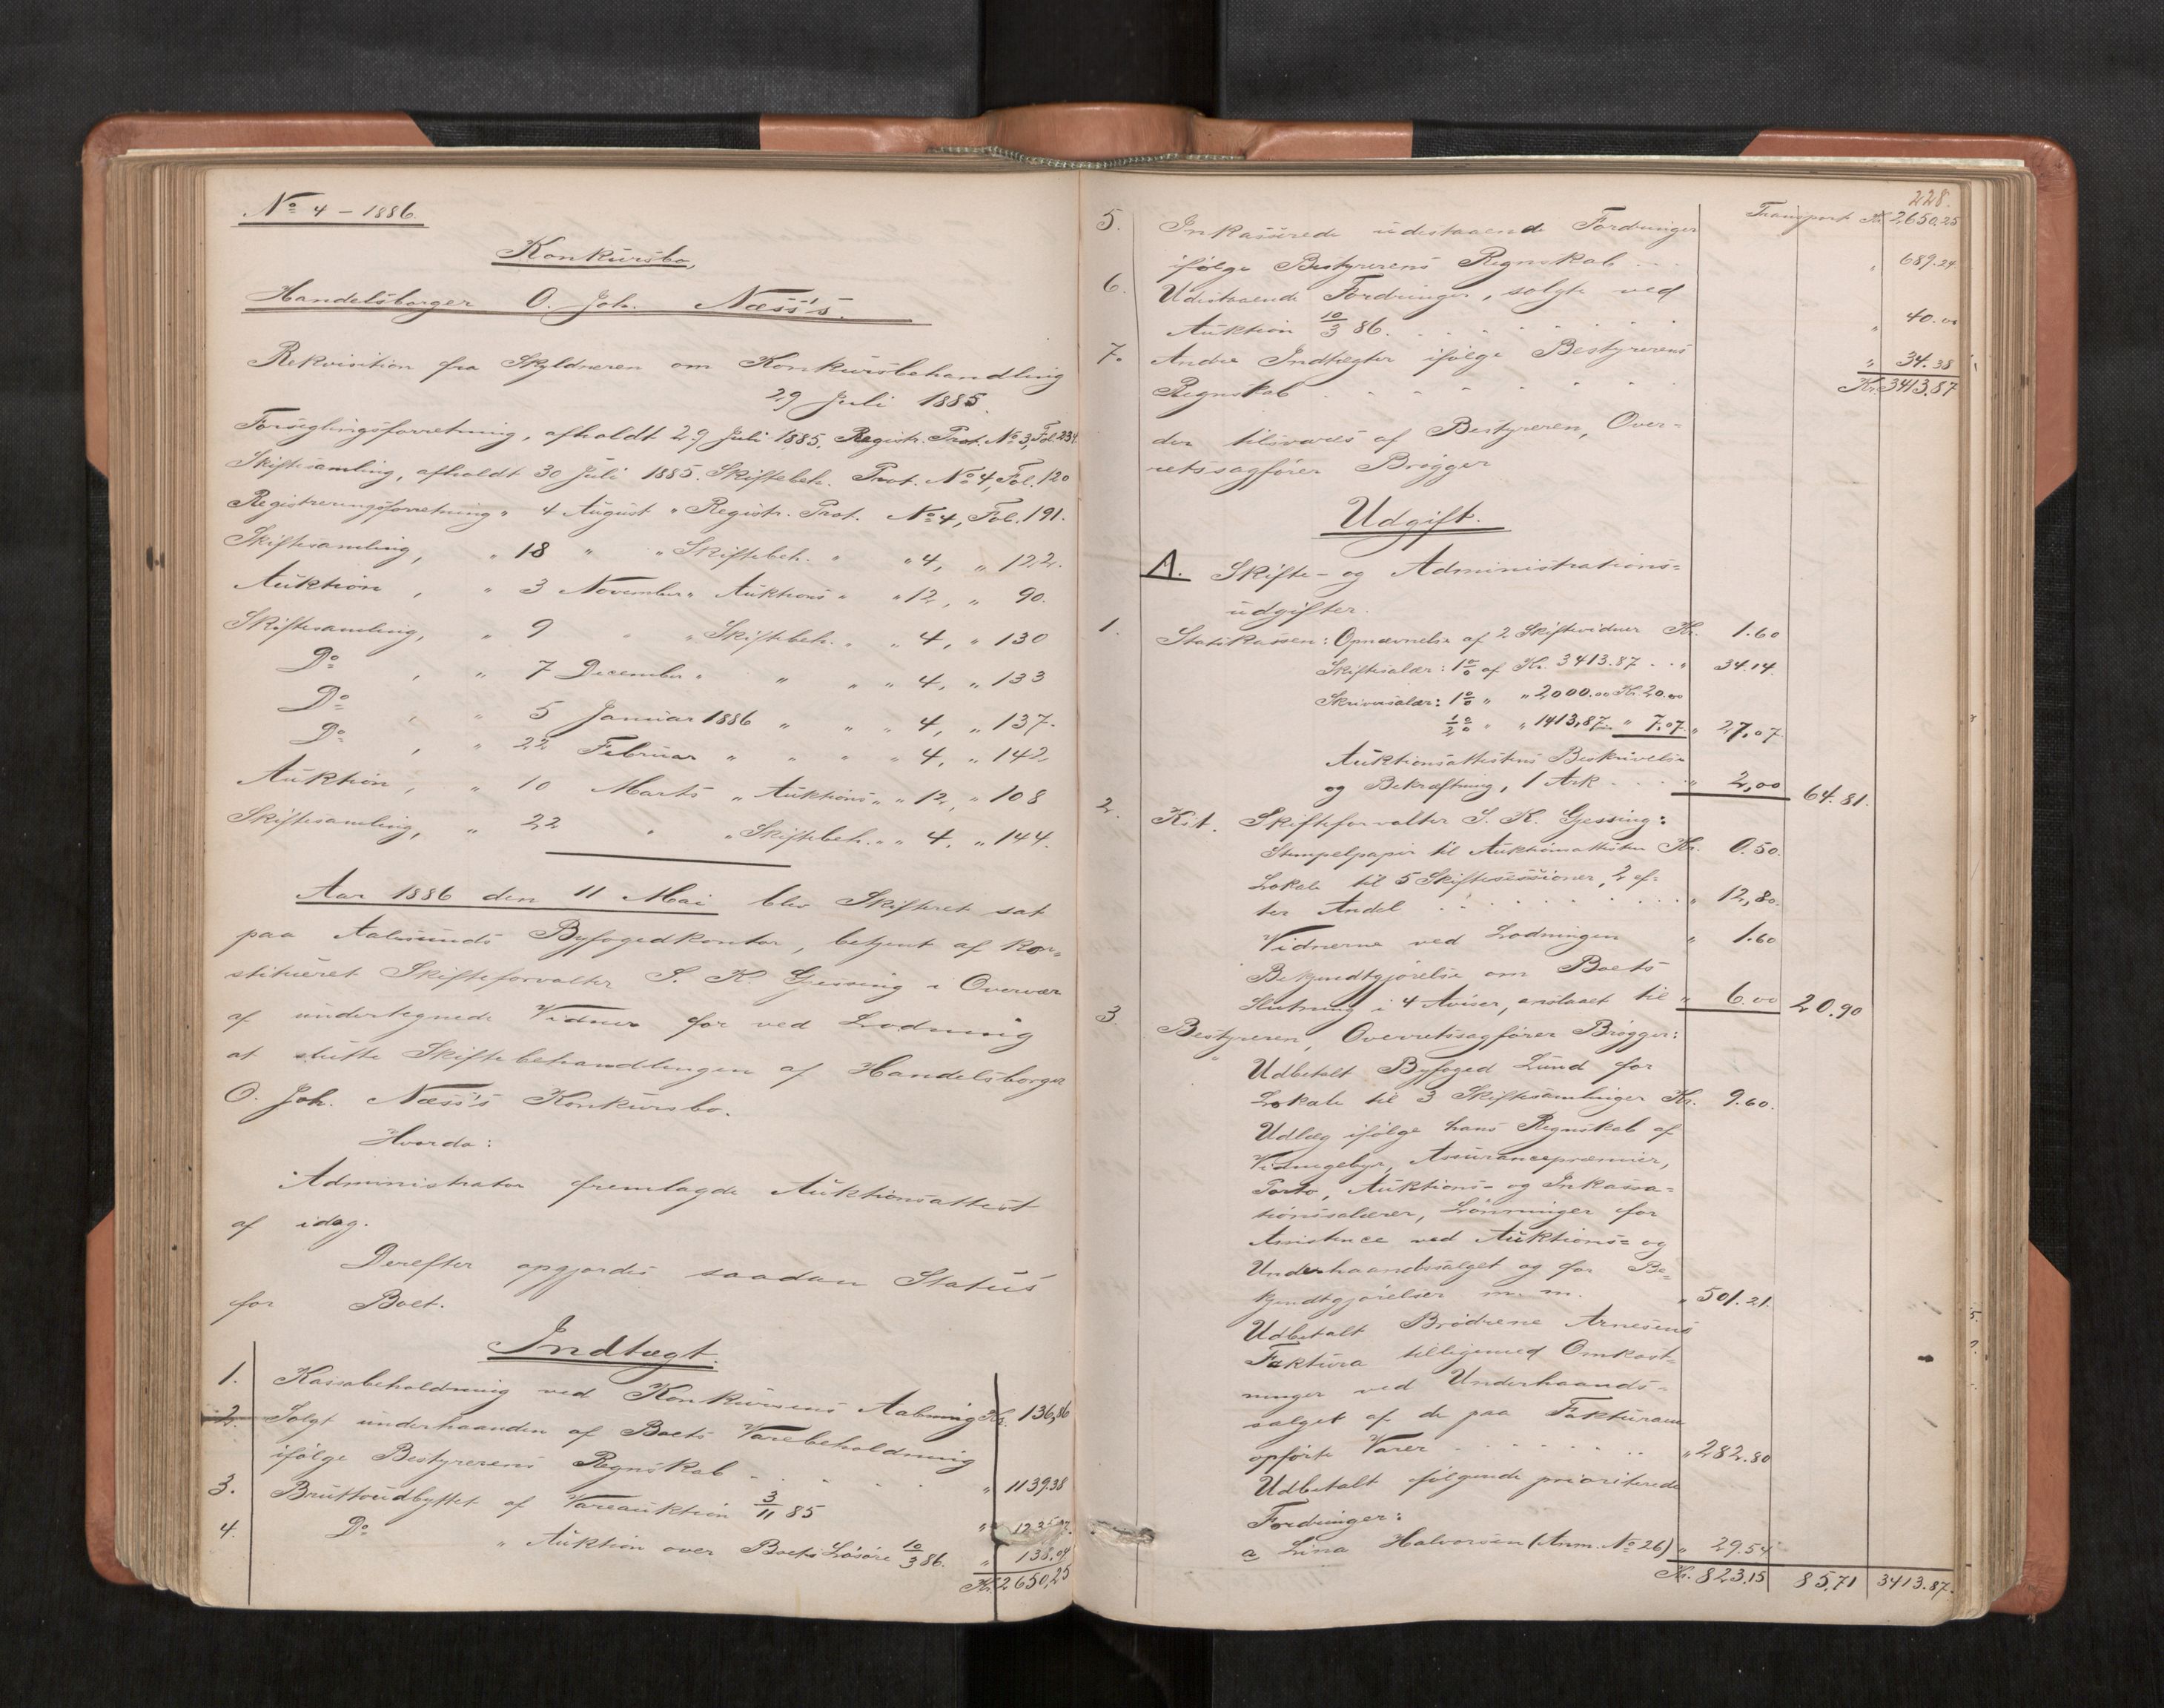 No 4 – 1886.
Konkursbo,
Handelsborger O. Joh. Næss's.
Rekvisition fra Skyldneren om Konkursbehandling
29 Juli 1885.
Forseglingsforretning, afholdt 29 Juli 1885. Registr. Prot. No 3, Fol. 234.
Skiftesamling, afholdt 30 Juli 1885. Skiftebeh. Prot. No 4, Fol. 120
Registreringsforretning " 4 August " Registr. Prot. No 4, Fol. 191.
Skiftesamling, " 18 " " Skiftebeh. " " 4, " 122.
Auktion, " 3 November " Auktions " " 12, " 90.
Skiftesamling, " 9 " " Skiftebeh. " " 4, " 130
Do , " 7 December " " " " 4, " 133
Do , " 5 Januar 1886 " " " 4, " 137.
Do , " 22 Februar " " " " 4, " 142
Auktion, " 10 Marts " Auktions " " 12, " 108
Skiftesamling, " 22 " " Skiftebeh. " " 4, " 144.
Aar 1886 den 11 Mai blev Skifteret sat
paa Aalesunds Byfogedkontor, betjent af kon-
stitueret Skifteforvalter S. K. Gjessing i Overvær
af undertegnede Vidner for ved Lodning
at slutte Skiftebehandlingen af Handelsborger
O. Joh. Næss's Konkursbo.
Hvorda:
Administrator fremlagde Auktionsattest
af idag.
Derefter opgjordes saadan Status
for Boet.
Indtægt.
1. Kassabeholdning ved Konkursens Aabning Kr. 136,86
2. Solgt underhaanden af Boets Varebeholdning
ifølge Bestyrerens Regnskab . . . . " 1139.38
3. Bruttoudbyttet af Vareauktion 3/11 85 "
4. Do " Auktion over Boets Løsøre 10/3 86. " 138.04
Kr. 2650,25
228.
Transport Kr. 2650,25
5. Inkasserede udestaaende Fordringer
ifølge Bestyrerens Regnskab . . . " 689.24
6. Udestaaende Fordringer, solgte ved
Auktion 10/3 86. . . . . . " 40.00
7. Andre Indtægter ifølge Bestyrerens
Regnskab . . . . . . " 34.38
Kr. 3413,87
der tilsvares af Bestyreren, Over-
retssagfører Brøgger
Udgift.
A. Skifte- og Administrations-
udgifter.
1. Statskassen: Opnævnelse af 2 Skiftevidner Kr. 1.60
Skiftesalær: 1% af Kr. 3413.87 . . " 34.14
Skriversalær: 1% " " 2000.00 Kr. 20.00
1/2% " " 1413,87 " 7.07 " 27,07
Auktionsattestens Beskrivelse
og Bekræftning, 1 Ark . . . . " 2,00 64.81.
2. Kst. Skifteforvalter S. K. Gjessing:
Stempelpapir til Auktionsattesten Kr. 0.50.
Lokale til 5 Skiftesessioner, 2 ef-
ter Andel . . . . . . . . " 12,80.
Vidnerne ved Lodningen " 1.60
Bekjendtgjørelse om Boets
Slutning i 4 Aviser, anslaaet til " 6.00 20.90
3. Bestyreren, Overretssagfører Brøgger:
Udbetalt Byfoged Lund for
Lokale til 3 Skiftesamlinger Kr. 9.60.
Udlæg ifølge hans Regnskab af
Vidnegebyr, Assurancepræmier,
Porto, Auktions- og Inkassa-
tionssalærer, Lønninger for
Assistence ved Auktions- og
Underhaandssalget og for Be-
kjendtgjørelser m. m. " 501.21.
Udbetalt Brødrene Arnesens
Faktura tilligemed Omkost-
ninger ved Underhaands-
salget af de paa Fakturaen
opførte Varer . . . . . . . " 282.80
Udbetalt følgende prioriterede
Fordringer:
a Lina Halvorsen (Anm. No 26) " 29.54
Kr. 823.15 85,71 3413.87.